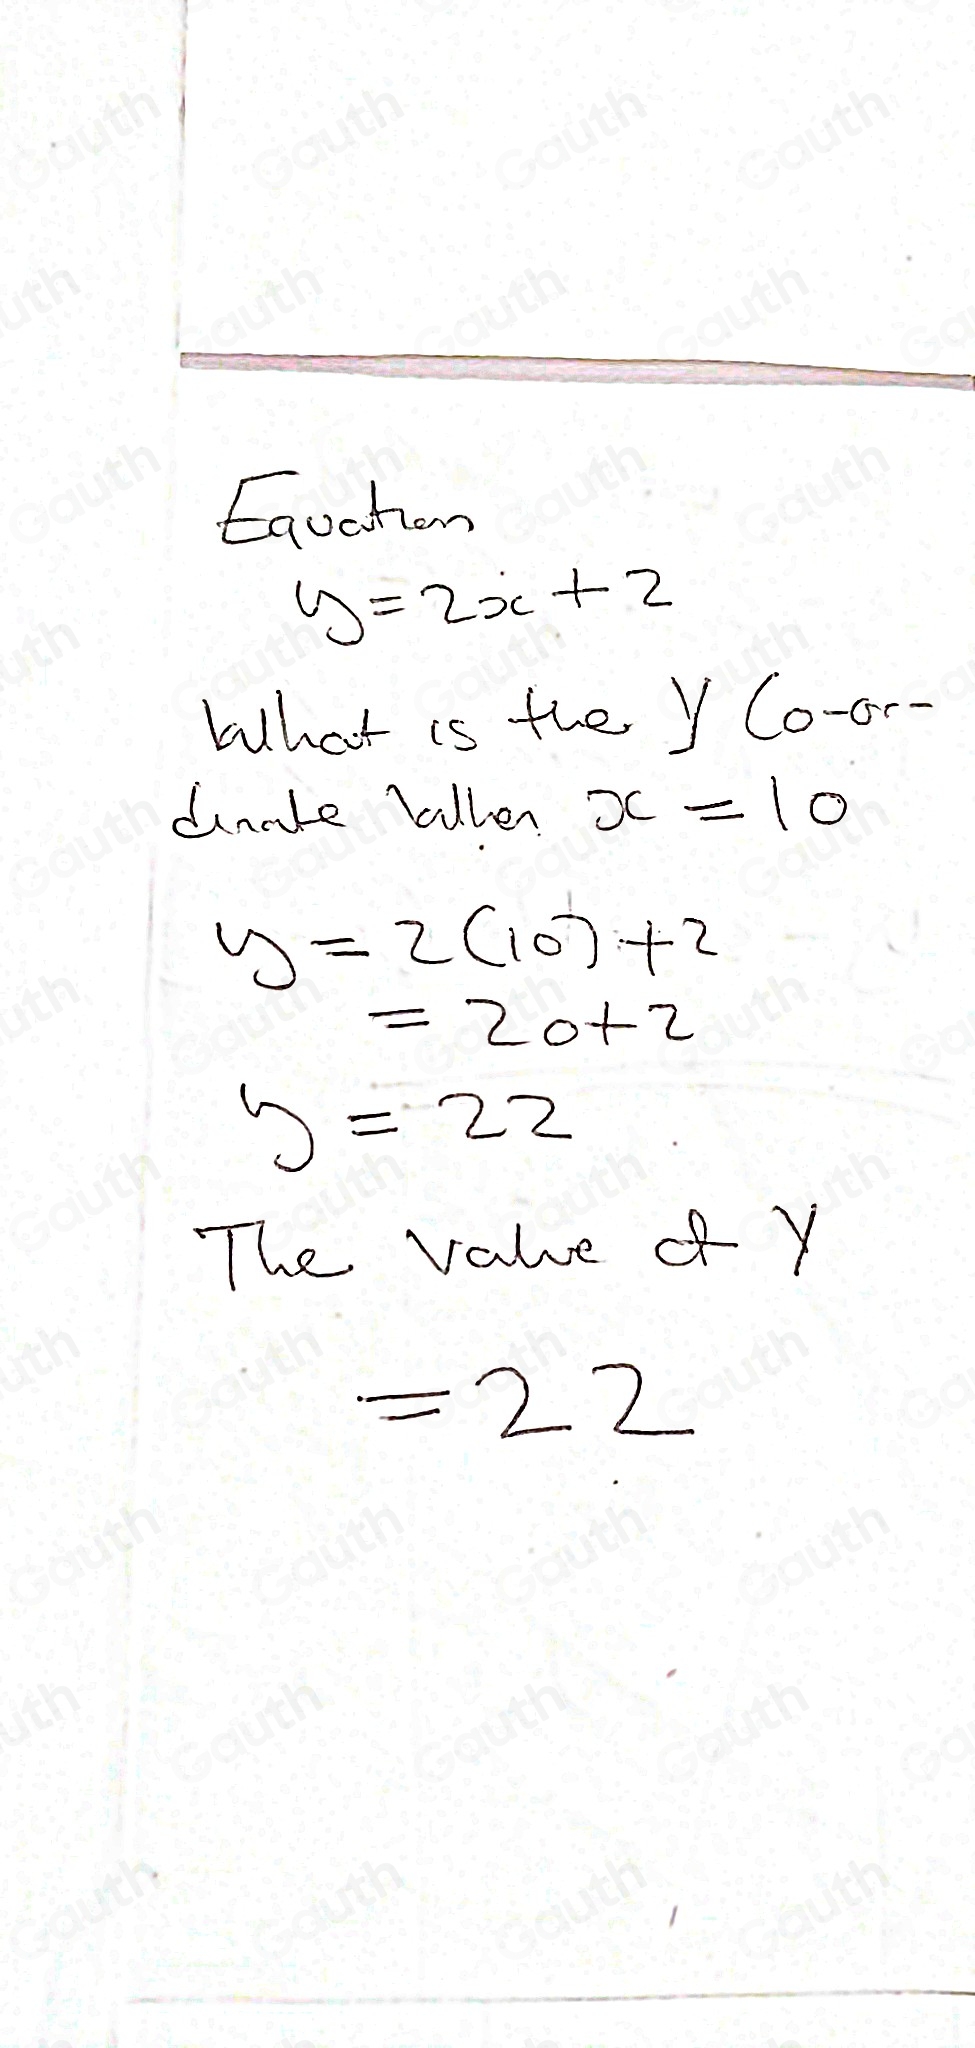 Equation
y = 2x + 2
What is the y Co-or-
dinate when x = 10
y = 2(10) + 2
= 20+2
y = 22
The value of y
= 22